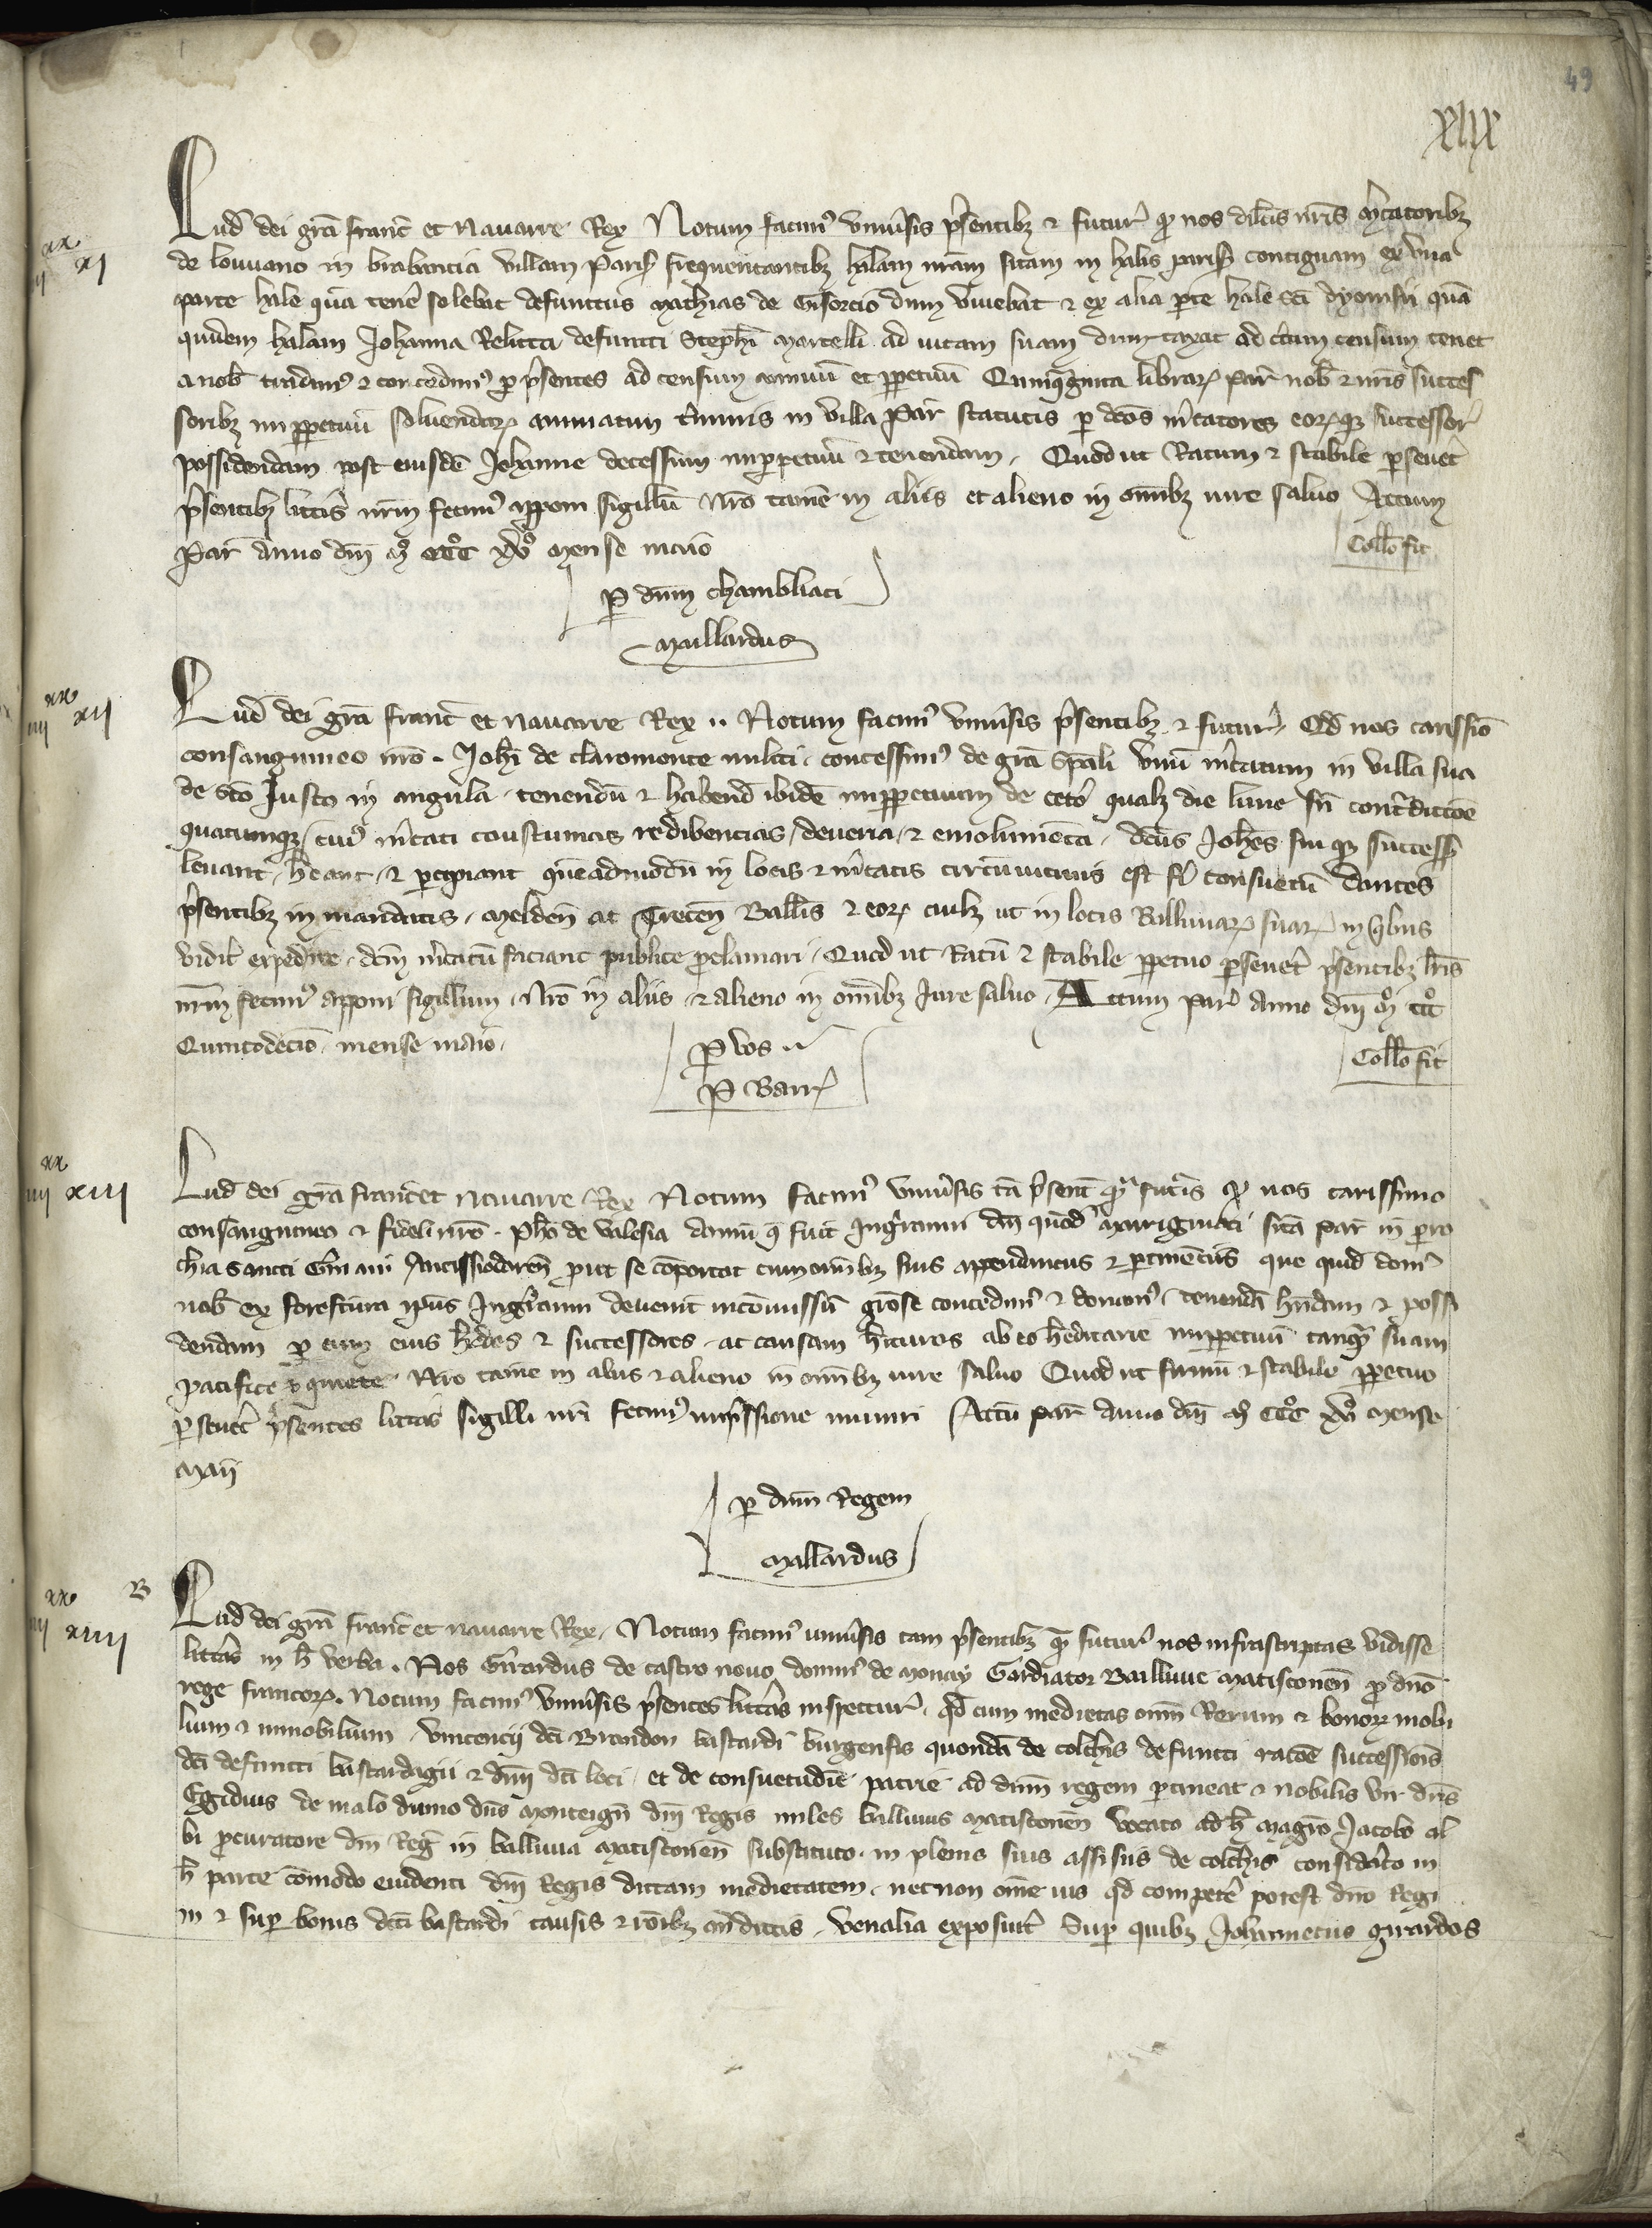 49
xlix
xx
iiii xi
Lud dei gra franc et Nauarre Rex Notum facim9 vniusis psentibz & futur q nos dilcis nris mcatoribz
de louuano in brabancia villam Paris frequentantibz halam nram sitam in halis paris contiguam ex vna
parte hale qua tene solebat defunctus Mathias de Gisorcio dum viuebat & ex alia pte hale sci dyonisii qua
quidem halam Johanna Relicta defuncti Stephi Martelli ad uitam suam dumtaxat ad ctum censum tenet
a nob tradim9 & concedim9 p psentes ad censum annuu et ppetuu Quinqginta librar par nob & nris succes
soribz inppetuu soluendar annuatim tminis in villa Par statutis p dcos mcatores eorqz successor
possidendam post eiusde Johanne decessum inppetuu & tenendam. Quod ut Ratum & stabile pseuet
psentibz littis nrm fecim9 apponi sigillu Nro tame in aliis et alieno in omibz iure saluo Actum
Par Anno dni Mo CCCo xvo Mense maio
Collo fit
P dnm Chambliaci
Maillardus
xx
iiii xii
Lud dei gra franc et nauarre Rex .. Notum facim9 vniusis psentibz & futur, Qd nos carissio
consanguineo nro . Johi de claromonte militi concessim9 de gra spali vnu mcatum in villa sua
de sco Justo in angula tenendu & habend ibide inppetuum de ceto qualz die lune sn contdictoe
quacumqz cui9 mcati coustumas redibencias, deueria, & emolumeta, dcus Johes sui qz success
leuant, heant, & percipiant queadmodu in locis & mcatis circuuicinis est fi consuetu Dantes
psentibz in mandatis, Melden ac Trecen Balliis & eor cuilz ut in locis Balliuiar suar in qbus
vidit expedire, dcm mcatu faciant publice pclamari, Quod ut Ratu & stabile ppetuo pseuet psentibz lris
nrm fecim9 apponi sigillum, Nro in aliis & alieno in omibz Jure saluo, Actum par Anno dni Mo CCCo
Quintodecio mense maio,
Collo fit
P vos ..
P Barr
xx
iiii xiii
Lud dei gra franc et nauarre Rex Notum facim9 vniusis ta psent qa futis q nos carissimo
consanguineo & fideli nro . Pho de valesia domu q fuit Ingranni dni quod Marigniaci sita par in pro
chia Sancti Gmani Autissiodoren prout se comportat cum omibz suis appendiciis & ptineciis que quid dom9
nob ex forefctura ipius Ingranni deuenit in comissu grose concedim9 & donam9, tenenda hndam & possi
dendam p eum eius hedes & successores ac causam hituros ab eo heditarie inppetuu tanqa suam
pacifice & quiete Nro tame in aliis & alieno in omibz iure saluo Quod ut firmu & stabile ppetuo
pseuet psentes littas sigilli nri fecim9 inpssione muniri Actu par anno dni Mo CCCo xvo Mense
Maii
p dnm Regem
Mallardus
xx
iiii xiiii
B
Lud dei gra franc et nauarre Rex, Notum facim9 uniusis tam psentibz qa futur nos infrascriptas vidisse
littas in h verba. Nos Girardus de castro nouo domin9 de Monay Gardiator Balliuie Matisconen p dno
rege francor. Notum facim9 vniusis psentes littas inspectur, qd cum medietas oium Rerum & bonor mobi
lium & inmobilium vincencii dci Brandon bastardi burgensis quonda de colchis defuncti ratoe successiois
dci defuncti bastardagii & dnii dci loci, et de consuetudie patrie ad dnm regem ptineat & nobilis vir dns
Egidius de malo dumo dns Monteign dni Regis miles balliuus Matisconen vocato ad h magro Jacobo al
bi pcuratore dni Reg in balliuia Matisconen substituto in plenis suis assisiis de colchis considato in
h parte comodo euidenti dni Regis dictam medietatem, necnon ome ius qd compete potest dno Regi
in & sup bonis dci bastardi causis & roibz andictis venalia exposuit Sup quibz Johannetus girardos